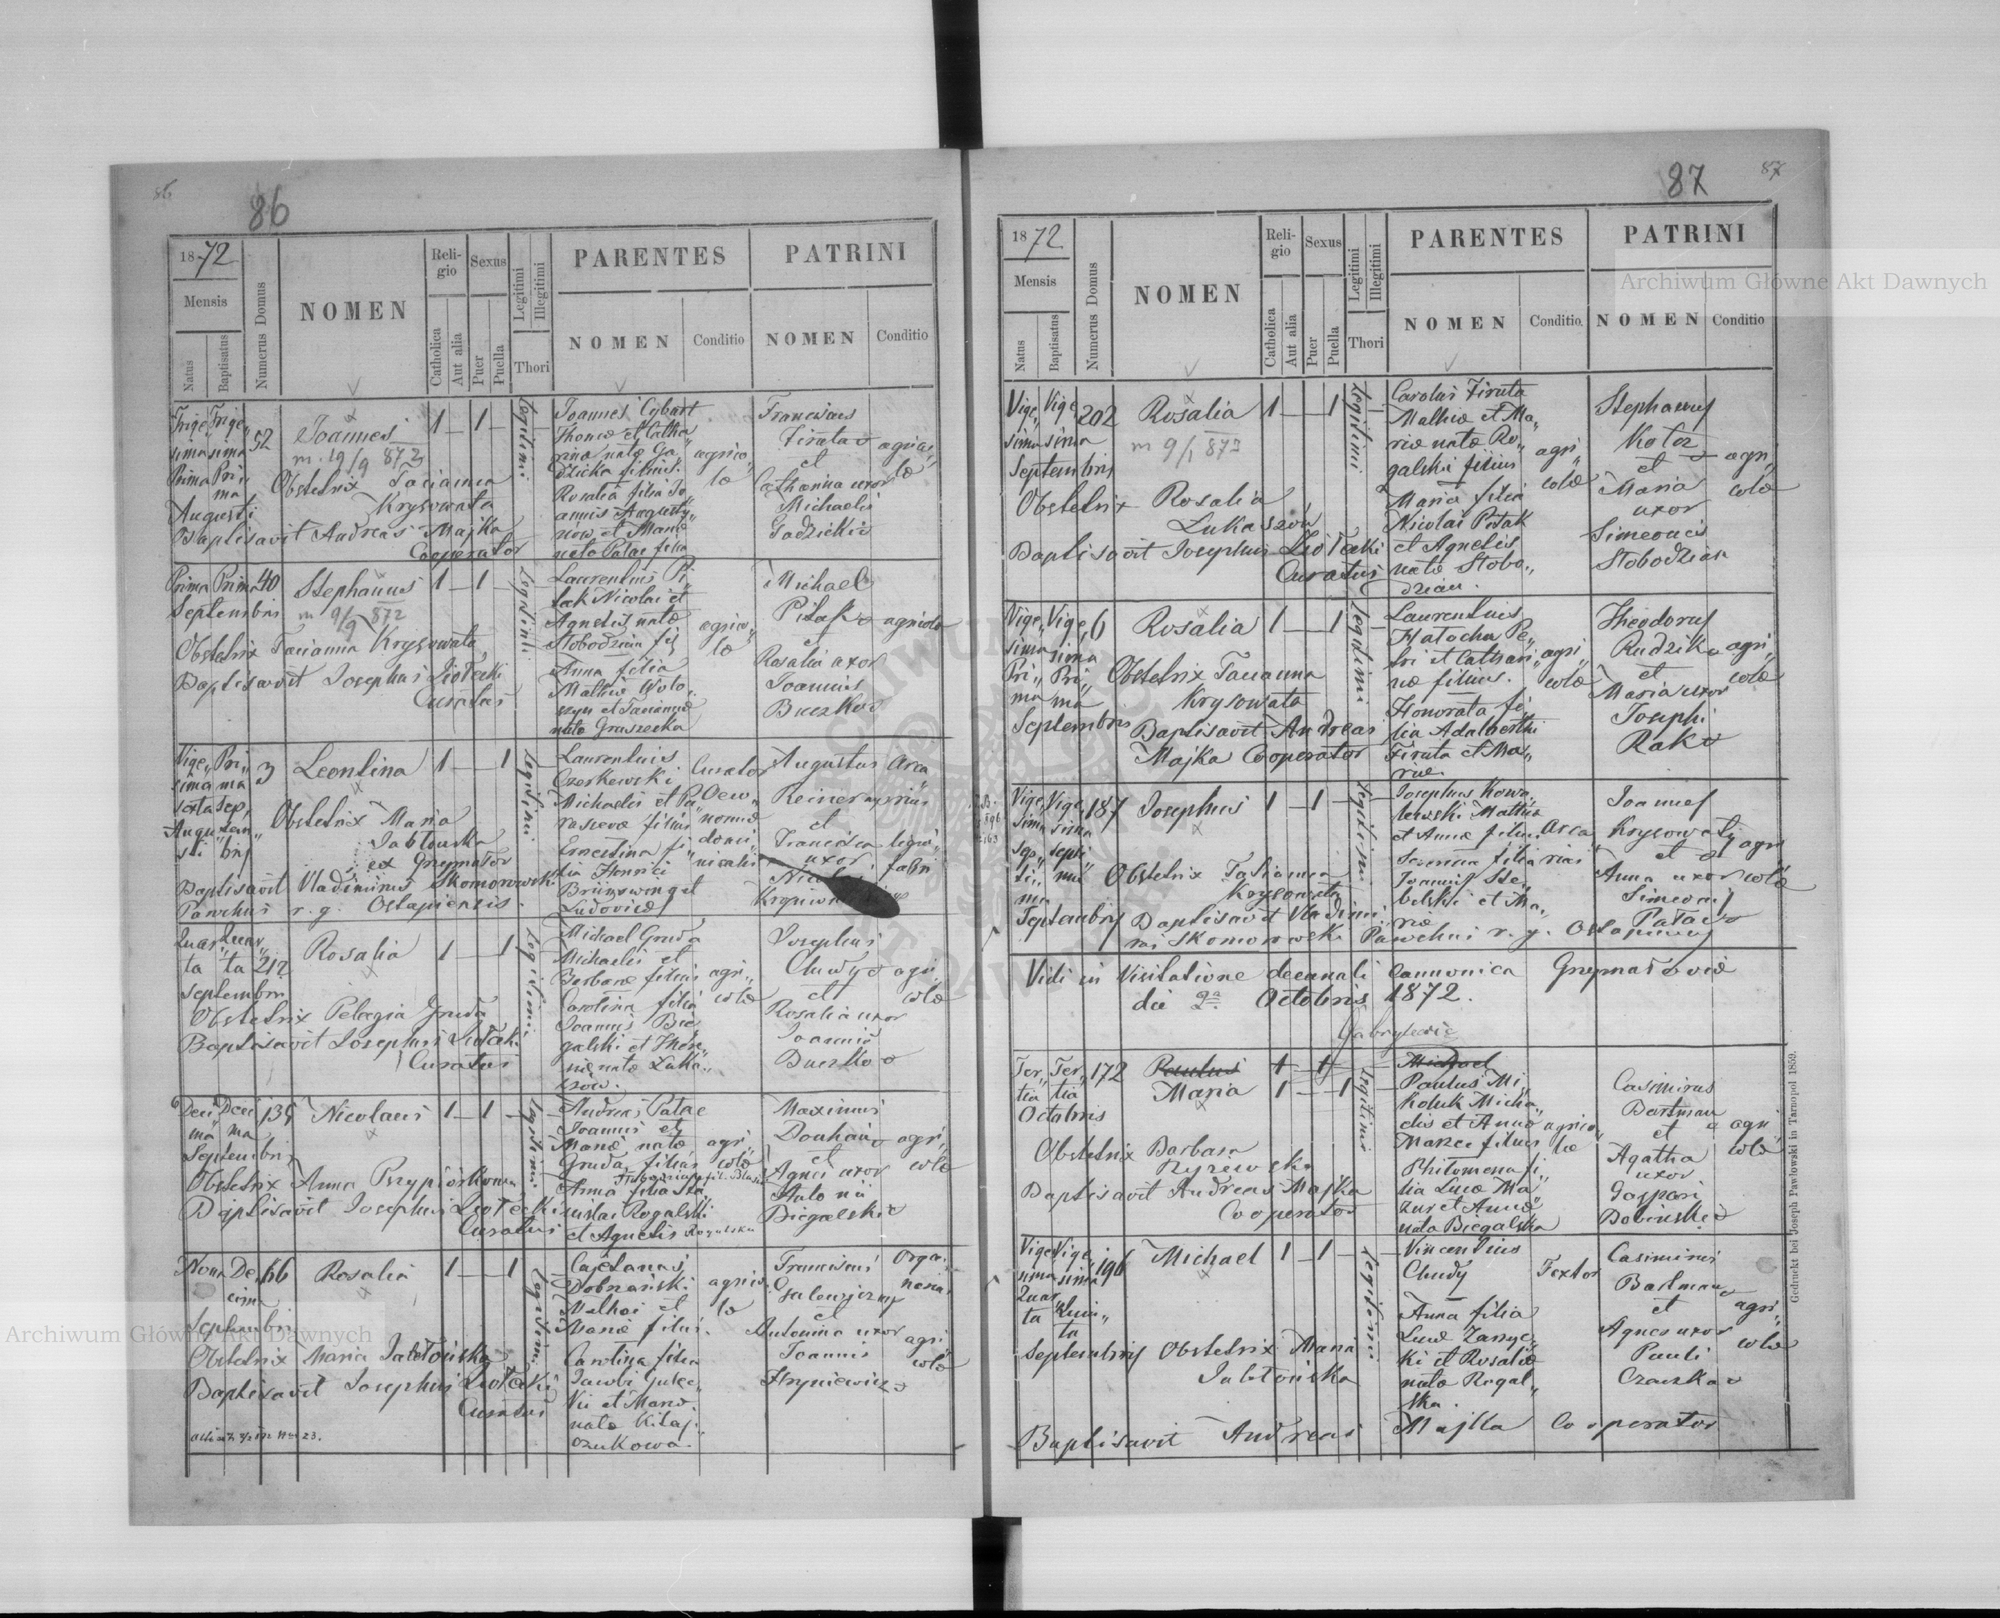 86
86
1872
Mensis
Natus
Baptisatus
Numerus Domus
NOMEN
Religio
Catholica
Aut alia
Sexus
Puer
Puella
Legitimi
Illegitimi
Thori
PARENTES
NOMEN
Conditio
PATRINI
NOMEN
Conditio
Trige„ Trige„ 52
sima sima
Prima Pri„
ma
Augusti
Joannes
m. 19/9 872
Obstetrix Tacianna
Krysowata
Baptisavit Andreas Majka
Cooperator
1 1
Legitimi
Joannes Cybart
Thomæ et Catha„
rina natæ Ga„
dzicka filius.
Rosalia filia Jo
annis Augusty„
nów et Mariæ
natæ Patac filia
agrico„
læ
Franciscus
Firuta
et
Catharina uxor
Michaelis
Gadzicki
agrico„
læ
Prima Prima 40
Septembris
Stephanus
m 9/9 872
Obstetrix Tacianna Krysowata
Baptisavit Josephus Ziołecki
Curatus
1 1
Legitimi
Laurentius Pi„
tak Nicolai et
Agnetis natæ
Słobodzian fil
Anna filia
Mathiæ Woło„
szyn et Taciannæ
natæ Gruszecka
agrico„
læ
Michael
Pitak
et
Rosalia uxor
Joannis
Buczko
agricolæ
Vige„ Pri„ 3
sima ma
sexta Sep„
Augu„ tem„
sti bris
Leontina
Obstetrix Maria
Jabłońska
ex Grzymałow
Baptisavit Vladimirus Skomorowski
Parochus r. g. Ostapiensis.
1 1
Legitimi
Laurentius
Czerkewski
Michaelis et Pa„
rascevæ filius
Ernestina fi„
lia Henrici
Brünswing et
Ludovicæ
Curator
Oew„
nomus
domi„
nicalis
Augustus
Reiner
et
Francisca
uxor
Nicolai
Arca„
rius
Quar„ Quar„ 212
ta ta
Septembris
Rosalia
Obstetrix Pelagia Gruda
Baptisavit Josephus Ziołecki
Curatus
1 1
Legitimi
Michael Gruda
Michaelis et
Barbaræ filius
Carolina filia
Joannis Bie„
galski et There„
siæ natæ Łuka„
szów.
agri„
colæ
Josephus
Chudy
et
Rosalia uxor
Joannis
Buczko
agri„
colæ
Deci„ Deci„ 135
ma ma
Septembris
Nicolaus
Obstetrix Anna Przypiórkowa
Baptisavit Josephus Ziołecki
Curatus
1 1
Legitimi
Andreas Patac
Joannis et
Mariæ natæ
Gruda filius
Anna filia Sta„
nislai Rogalski
et Agnetis Rogalska
agri„
colæ
Maximus
et
Agnes uxor
Antonii
Biegalski
agri„
colæ
Nona De„ 66
cima
Septembris
Rosalia
Obstetrix Maria Jabłońska
Baptisavit Josephus Ziołecki
Curatus
1 1
Legitimi
Cajetanus
Dobrzański
Mathæi et
Mariæ filius.
Carolina filia
Jacobi
et Mariæ
natæ
agrico„
læ
Franciscus
et
Antonina uxor
Joannis
Hryniewicz
Orga„
agri„
colæ
87
87
1872
Mensis
Natus
Baptisatus
Numerus Domus
NOMEN
Religio
Catholica
Aut alia
Sexus
Puer
Puella
Legitimi
Illegitimi
Thori
PARENTES
NOMEN
Conditio
PATRINI
NOMEN
Conditio
Vige„ Vige„ 202
sima sima
Septembris
Rosalia
m 9/1 873
Obstetrix Rosalia
Łukaszów
Baptisavit Josephus Ziołecki
Curatus
1 1
Legitimi
Carolus Firuta
Mathiæ et Ma„
riæ natæ Ro„
galski filius
Maria filia
Nicolai Pitak
et Agnetis
natæ Słobo„
dzian.
agri„
colæ
Stephanus
Kotoz
et
Maria
uxor
Simeonis
Słobodzian
agri„
colæ
Vige„ Vige„ 6
sima sima
Pri„ Pri„
ma ma
Septembris
Rosalia
Obstetrix Tacianna
Krysowata
Baptisavit Andreas
Majka Cooperator
1 1
Legitimi
Laurentius
Hałocha Pe„
tri et Cathari„
næ filius.
Honorata fi„
lia Adalberti
Firuta et Ma„
riæ
agri„
colæ
Theodorus
Rudzik
et
Maria uxor
Josephi
Rak
agri„
colæ
Vige„ Vige„ 187
sima sima
Sep„ septi„
ti„ ma
ma
Septembris
Josephus
Obstetrix Tatianna
Krysowata
Baptisavit Vladimi„
rus Skomorowski Parochus r. g. Ostapiensis
1 1
Legitimi
Josephus Kowa„
lewski Mathiæ
et Annæ filius
filia
Joannis
et Ma„
riæ
Arca„
rius
Joannes
Krysowaty
et
Anna uxor
Simeonis
Patac
agri
colæ
Vidi in Visitatione decanali Cannonica Grzymałoviæ
die 2ª Octobris 1872.
Gabrylewic
Ter„ Ter„ 172
tia tia
Octobris
Paulus
Maria
Obstetrix Barbara
Ryzewska
Baptisavit Andreas Majka
Cooperator
1 1
1 1
Legitimi
Michael
Paulus Mi„
koluk Micha„
elis et Annæ
Mazur filius
Philomena fi„
lia Lucæ Ma„
zur et Annæ
nata Biegalska
agrico„
læ
Casimirus
Bartman
et
Agatha
uxor
Gaspari
Dobinski
agri„
colæ
Vige„ Vige„ 196
sima sima
Quar„ Quin„
ta ta
Septembris
Michael
Obstetrix Maria
Jabłońska
Baptisavit Andreas Majka Cooperator
1 1
Legitimi
Vincentius
Chudy
Anna filia
Lucæ Zarzyc„
ki et Rosaliæ
natæ Rogal„
ska.
Textor
Casimirus
Bartman
et
Agnes uxor
Pauli
Czaczka
agri„
colæ
Gedruckt bei Joseph Pawłowski in Tarnopol 1859.
Archiwum Główne Akt Dawnych
Archiwum Główne Akt Dawnych